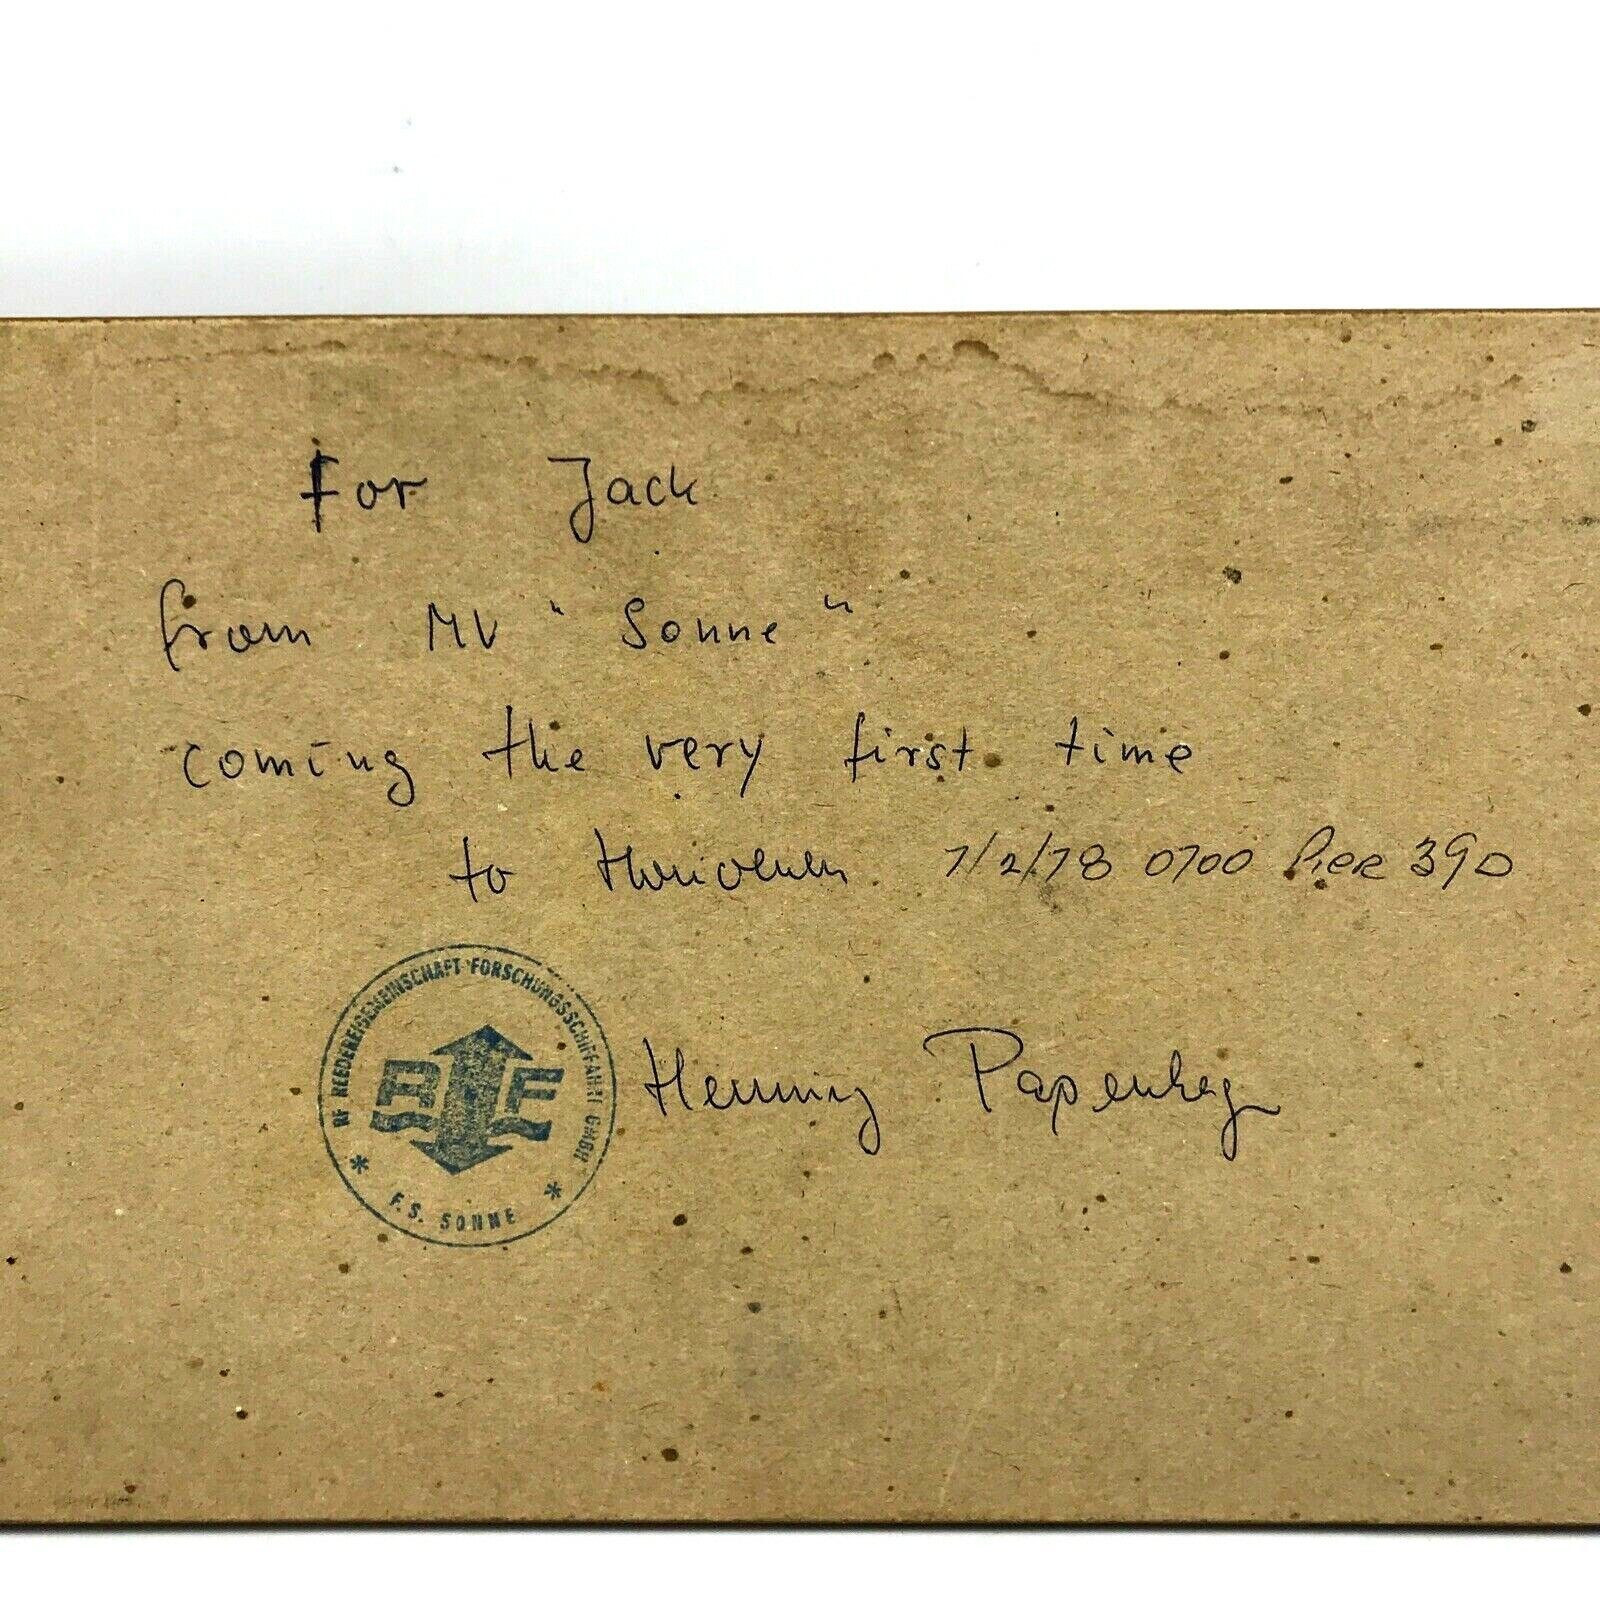 For Jack
from MV "Sonne"
coming the very first time
to Honolulu 7/2/78 0700 Pier 39D
RF REEDEREIGEMEINSCHAFT FORSCHUNGSSCHIFFAHRT GMBH
RF
* F.S. SONNE *
Henning